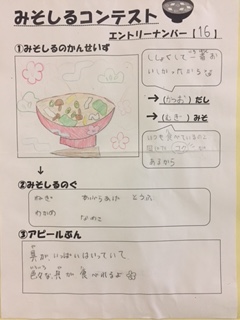 みそしるコンテスト
エントリーナンバー【16】
①みそしるのかんせいず
ししょくして一番お
いしかったから
→(かつお)だし
→(むぎ)みそ
いつも食べているのと
あるから
②みそしるのぐ
ねぎ あぶらあげ とうふ
わかめ なめこ
③アピールぶん
具がいっぱいはいっていて
色々な具が食べれるよ